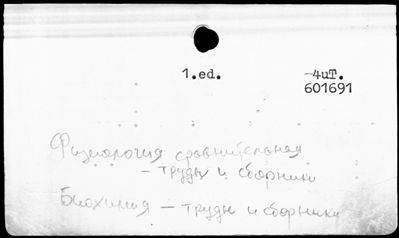 1.ed. -4uT.
601691
Физиология сравнительная
- труды и сборники
Биохимия - труды и сборники